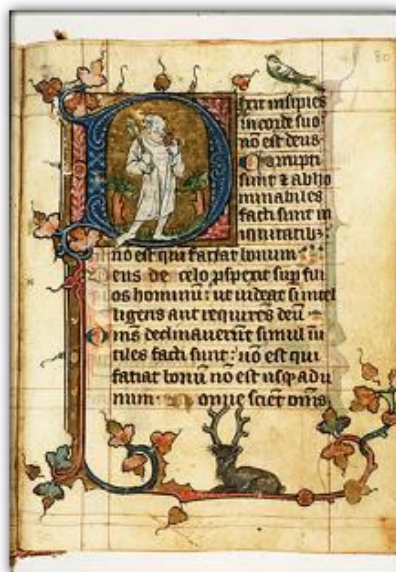 80
Dixit insipiēs
in corde suo
nō est deus
Corrupti
sunt ⁊ abho
minabiles
facti sunt in
iniquitatibꝫ
nō est qui faciat bonum
eus de celo ꝓspexit sup fili
os hominū: ut uideat si intel
ligens aut requirēs deū
mēs declinauerūt simul īu
tiles facti sunt: nō est qui
faciat bonū nō est usqꝫ ad u
num. onne scient om̄s